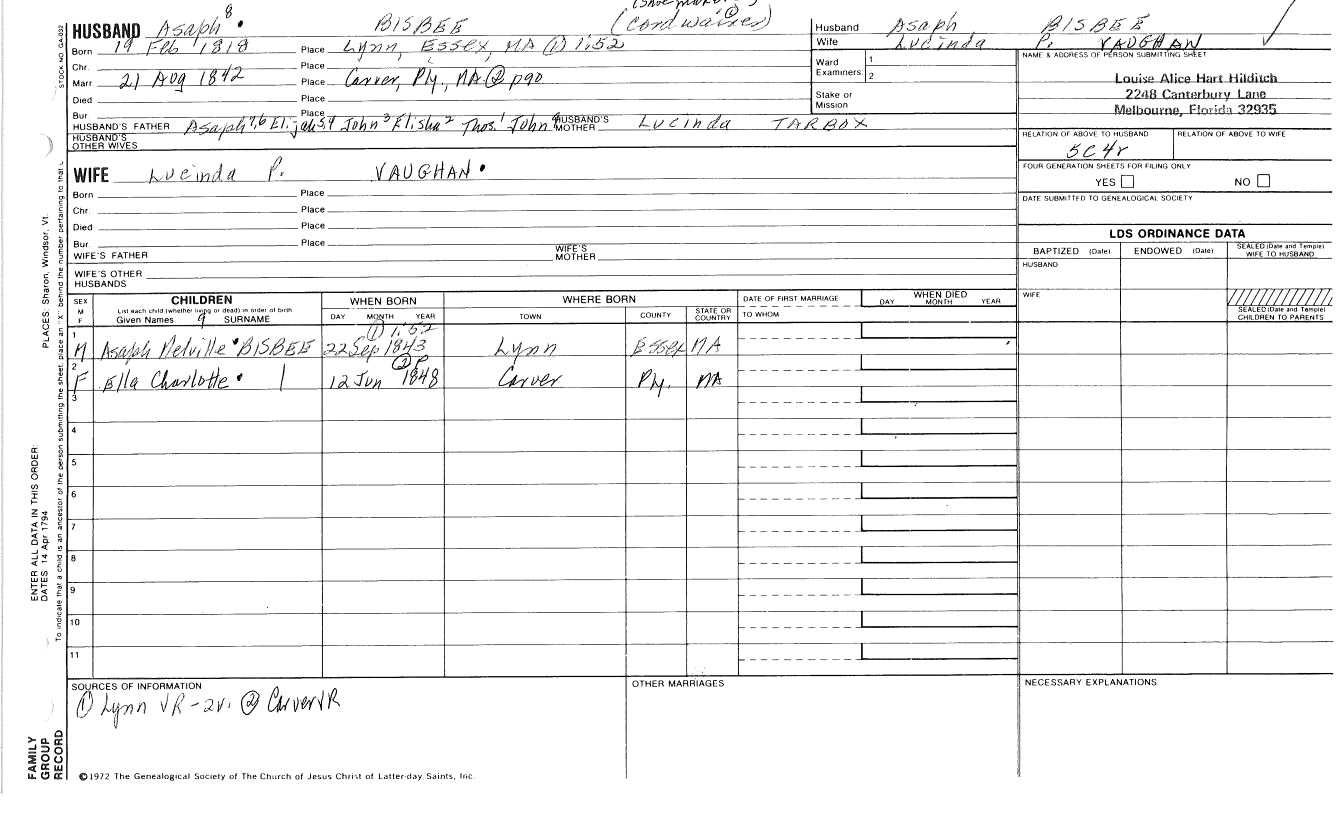 (Shoe maker)
HUSBAND Asaph 8 BISBEE (Cordwainer) ②
Born 19 Feb 1818 Place Lynn, Essex, MA ① 1:52
Chr. Place
Marr 21 Aug 1842 Place Carver, Ply, MA ② p90
Died Place
Bur Place
HUSBAND'S FATHER Asaph 7,6 Elijah 5,4 John 3 Elisha 2 Thos. 1 John HUSBAND'S MOTHER Lucinda TARBOX
HUSBAND'S OTHER WIVES
WIFE Lucinda P. VAUGHAN
Born Place
Chr. Place
Died Place
Bur. Place
WIFE'S FATHER WIFE'S MOTHER
WIFE'S OTHER HUSBANDS
Husband Asaph BISBEE
Wife Lucinda P. VAUGHAN
Ward 1
Examiners: 2
Stake or Mission
NAME & ADDRESS OF PERSON SUBMITTING SHEET
Louise Alice Hart Hilditch
2248 Canterbury Lane
Melbourne, Florida 32935
RELATION OF ABOVE TO HUSBAND RELATION OF ABOVE TO WIFE
5C4r
FOUR GENERATION SHEETS FOR FILING ONLY
YES NO
DATE SUBMITTED TO GENEALOGICAL SOCIETY
LDS ORDINANCE DATA
BAPTIZED (Date) ENDOWED (Date) SEALED (Date and Temple) WIFE TO HUSBAND
HUSBAND
WIFE
SEALED (Date and Temple) CHILDREN TO PARENTS
SEX M F CHILDREN WHEN BORN WHERE BORN DATE OF FIRST MARRIAGE WHEN DIED
List each child (whether living or dead) in order of birth
Given Names 9 SURNAME DAY MONTH YEAR TOWN COUNTY STATE OR COUNTRY TO WHOM DAY MONTH YEAR
① 1:52
1 M Asaph Melville BISBEE 22 Sep 1843 Lynn Essex MA
② P
2 F Ella Charlotte 12 Jun 1848 Carver Ply. MA
3
4
5
6
7
8
9
10
11
SOURCES OF INFORMATION OTHER MARRIAGES NECESSARY EXPLANATIONS
① Lynn VR-2v. ② Carver VR
©1972 The Genealogical Society of The Church of Jesus Christ of Latter-day Saints, Inc.
STOCK NO. GA-002
To indicate that a child is an ancestor of the person submitting the sheet, place an "X" behind the number pertaining to that
PLACES: Sharon, Windsor, Vt.
ENTER ALL DATA IN THIS ORDER:
DATES: 14 Apr 1794
FAMILY GROUP RECORD